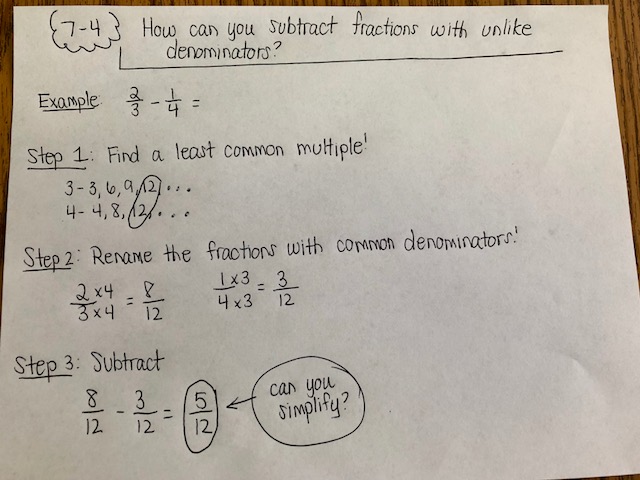 7-4 How can you subtract fractions with unlike
denominators?
Example 2/3 - 1/4 =
Step 1: Find a least common multiple!
3 - 3, 6, 9, 12, ...
4 - 4, 8, 12, ...
Step 2: Rename the fractions with common denominators!
2 x 4 / 3 x 4 = 8/12 1 x 3 / 4 x 3 = 3/12
Step 3: Subtract
8/12 - 3/12 = 5/12 ← can you
simplify?